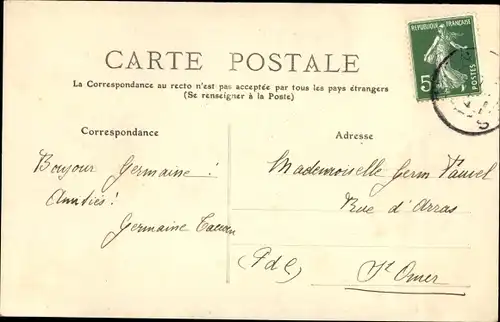 RÉPUBLIQUE FRANÇAISE
5
POSTES
CARTE POSTALE
La Correspondance au recto n'est pas acceptée par tous les pays étrangers
(Se renseigner à la Poste)
Correspondance
Bonjour Germaine !
Amitiés !
Germaine
Adresse
Mademoiselle Germ Fauvel
Rue d'Arras
(Pd C)
St Omer